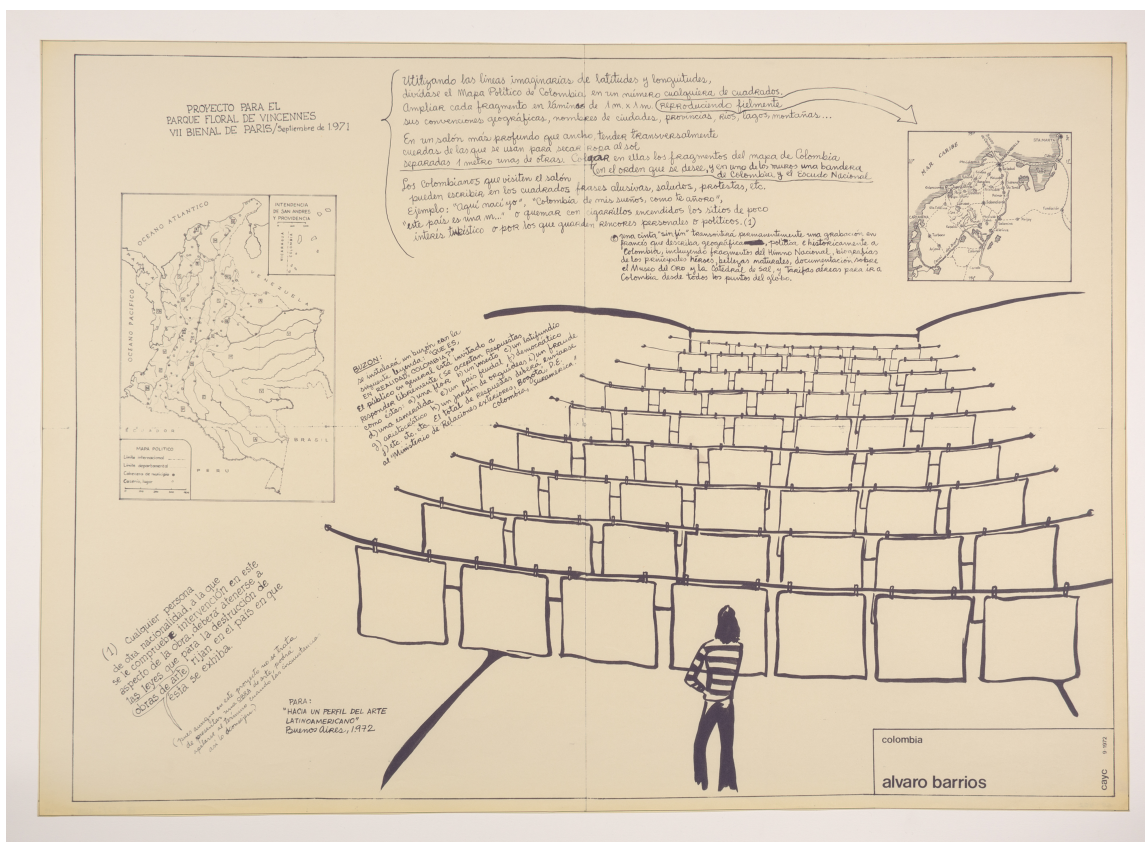 PROYECTO PARA EL
PARQUE FLORAL DE VINCENNES
VII BIENAL DE PARIS/septiembre de 1971
Utilizando las líneas imaginarias de latitudes y longuitudes,
divídase el Mapa Político de Colombia en un número cualquiera de cuadrados.
Ampliar cada fragmento en láminas de 1m x 1m. (reproduciendo fielmente
sus convenciones geográficas, nombres de ciudades, provincias, ríos, lagos, montañas...
En un salón más profundo que ancho, tender transversalmente
cuerdas de las que se usan para secar ropa al sol
separadas 1 metro unas de otras. Colgar en ellas los fragmentos del mapa de Colombia
(en el orden que se desee, y en uno de los muros una bandera
de Colombia y el Escudo Nacional.
Los Colombianos que visiten el salón
pueden escribir en los cuadrados frases alusivas, saludos, protestas, etc.
Ejemplo: "Aquí nací yo", "Colombia de mis sueños, como te añoro",
"este país es una m..." o quemar con cigarrillos encendidos los sitios de poco
interés turístico o por los que guarden rencores personales o políticos. (1)
una cinta "sin fin" transmitirá permanentemente una grabación en
francés que describa, geográfica, política e históricamente a
Colombia, incluyendo fragmentos del Himno Nacional, biografías
de los principales héroes, bellezas naturales, documentación sobre
el Museo del Oro y la Catedral de Sal, y tarifas aéreas para ir a
Colombia desde todos los puntos del globo.
MAR CARIBE
OCEANO ATLANTICO
INTENDENCIA
DE SAN ANDRES
Y PROVIDENCIA
OCEANO PACIFICO
VENEZUELA
BRASIL
PERU
ECUADOR
MAPA POLITICO
Límite internacional
Límite departamental
Cabecera de municipio
Caserío, lugar
BUZON:
se instalará un buzón con la
siguiente leyenda: "QUE ES,
EN REALIDAD, COLOMBIA?"
El público en general está invitado a
responder libremente (se aceptan respuestas
como éstas: a) una flor b) un invento c) un latifundio
d) una esmeralda e) un país feudal f) democrático
g) aristocrático h) un jardín de orquídeas i) un fraude
j) etc. etc. etc. El total de respuestas deberá enviarse
al "Ministerio de Relaciones exteriores, Bogotá, D.E.
Colombia, "Suramérica"
(1) Cualquier persona
de otra nacionalidad, a la que
se le compruebe intervención en este
aspecto de la obra, deberá atenerse a
las leyes que para la destrucción de
(obras de arte) rijan en el país en que
ésta se exhiba.
(pues aunque en este proyecto no se trata
de presentar una obra de arte, podría
aplicarse el término cuando las circunstancias
así lo dispongan)
PARA:
"HACIA UN PERFIL DEL ARTE
LATINOAMERICANO"
Buenos Aires, 1972
colombia
alvaro barrios
cayc